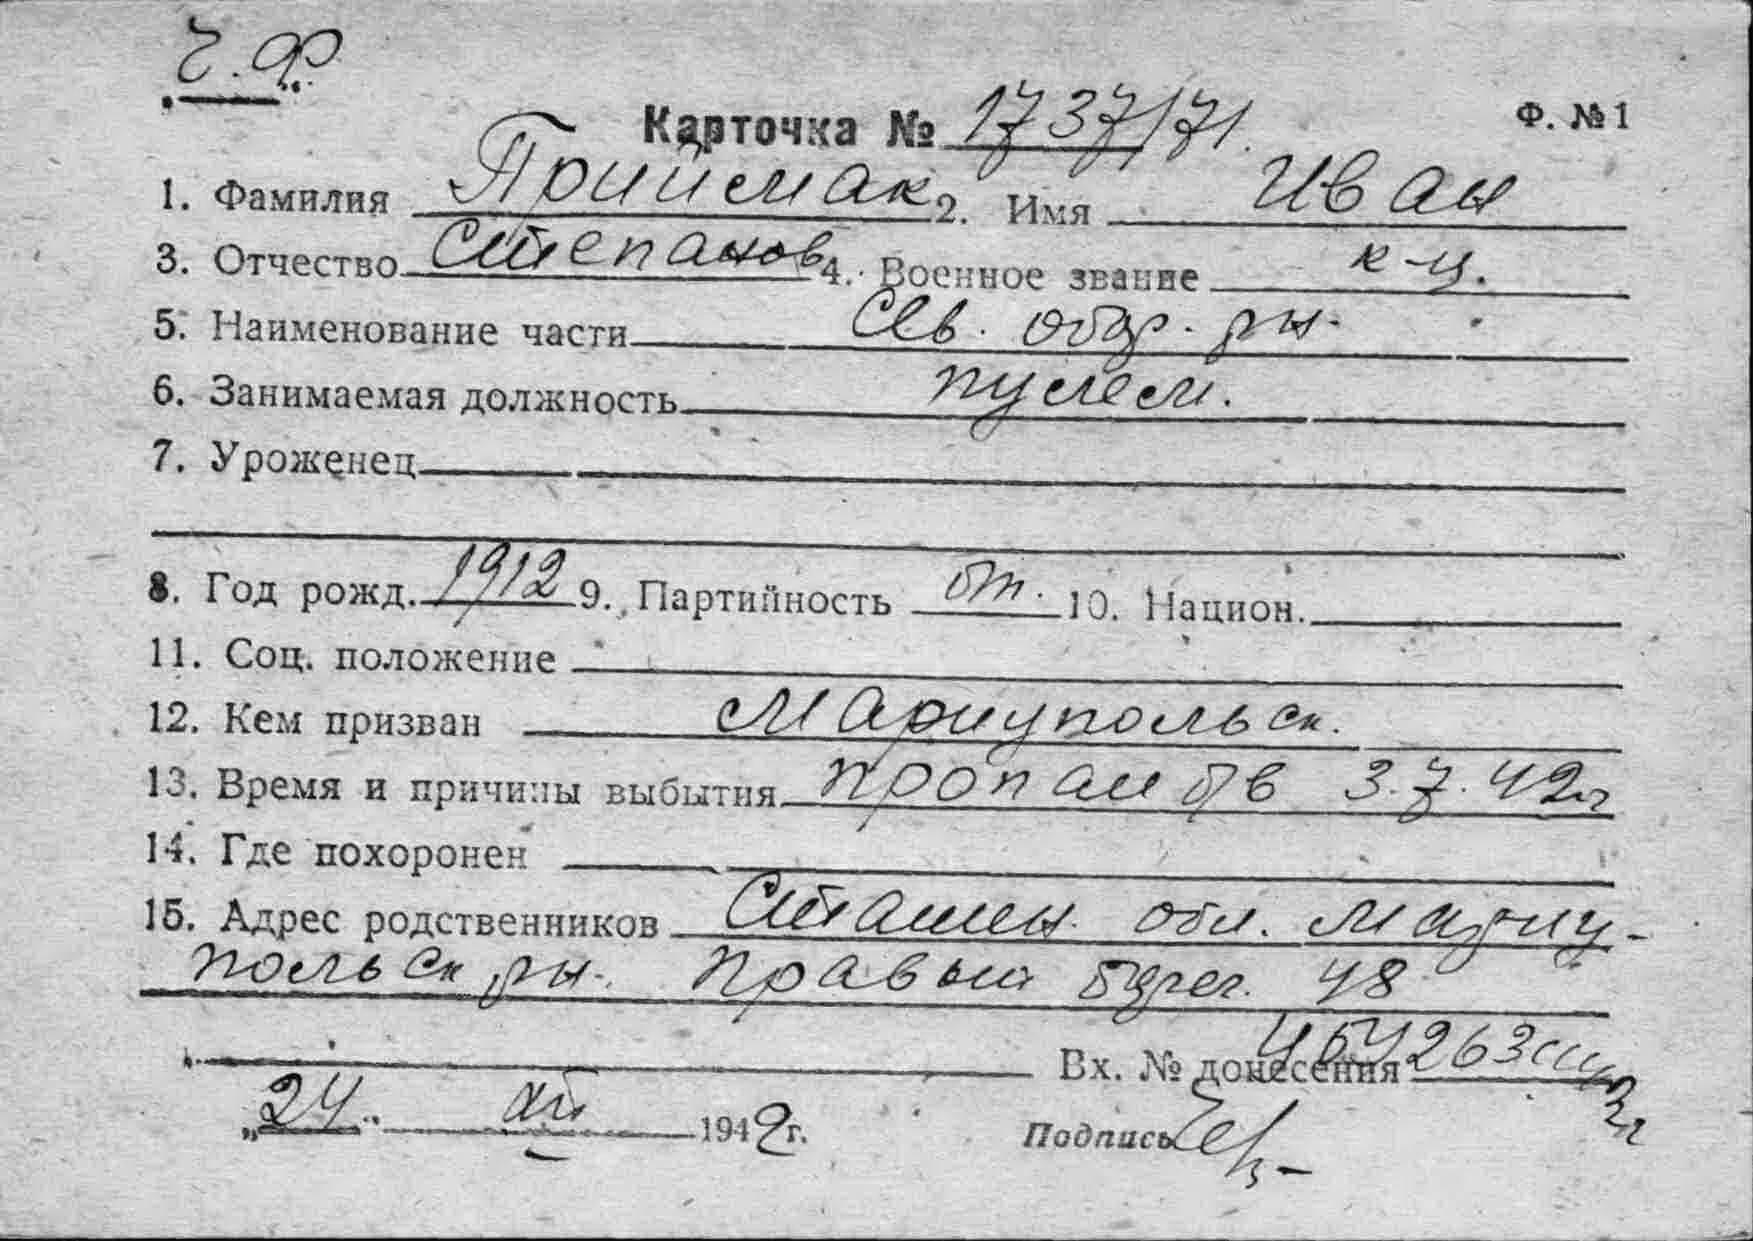 Ч.Ф.
Карточка № 1737/71. Ф. №1
1. Фамилия Приймак 2. Имя Иван
3. Отчество Степанов 4. Военное звание к-ц.
5. Наименование части Сев. обор. рн.
6. Занимаемая должность пулем.
7. Уроженец
8. Год рожд. 1912 9. Партийность бп. 10. Национ.
11. Соц. положение
12. Кем призван Мариупольск.
13. Время и причины выбытия пропал б/в 3.7.42г
14. Где похоронен
15. Адрес родственников Сталин. обл. Мариу-
польск рн. Правый берег. 48
Вх. № донесения
„24" XII 1942г.
Подпись